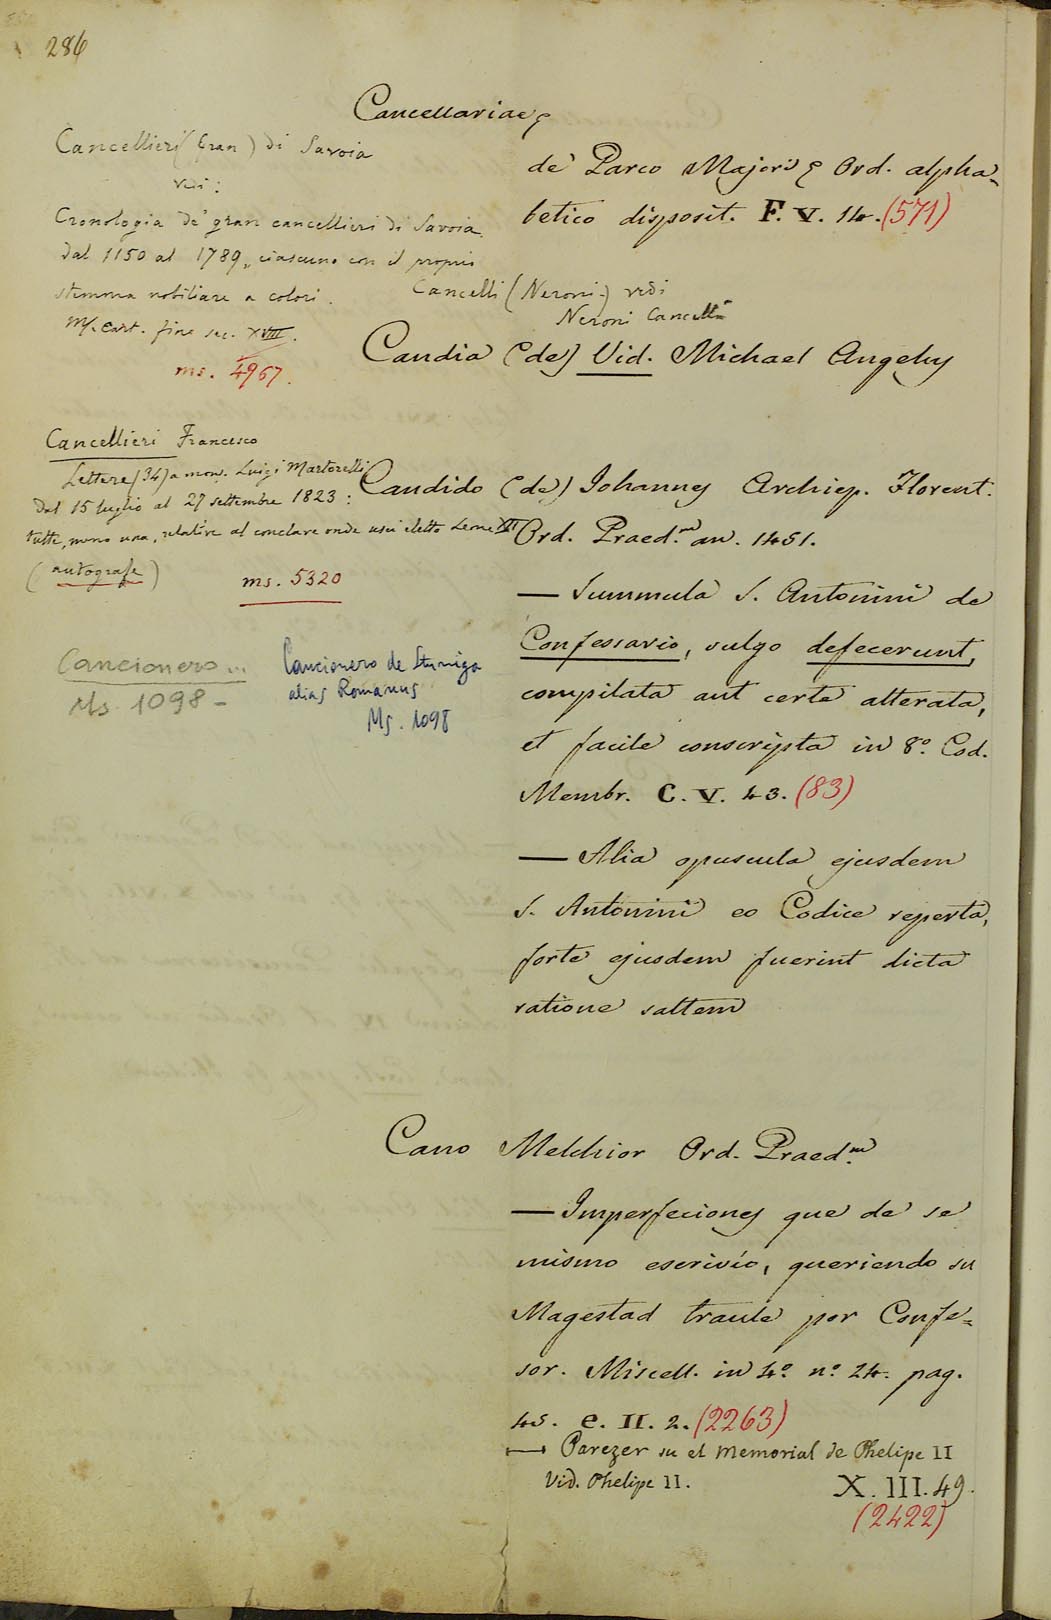 286
Cancellariae
de Parco Majori Ord. alpha-
betico disposit. F. V. 14. (571)
Cancellieri (Gran) di Savoia
vedi:
Cronologia de' gran cancellieri di Savoia
dal 1150 al 1789, ciascuno con il proprio
stemma nobiliare a colori.
Ms. cart. fine sec. XVIII.
ms. 4967.
Cancelli (Neroni) vedi
Neroni Cancelli
Candia (de) Vid. Michael Angelus
Cancellieri Francesco
Lettere (34) a mons. Luigi Martorelli
dal 15 luglio al 27 settembre 1823:
tutte, meno una, relative al conclave onde uscì eletto Leone XII
(autografe)
ms. 5320
Cancionero ...
Ms 1098 -
Cancionero de Stuniga
alias Romanus
Ms. 1098
Candido (de) Johannes Archiep. Florent.
Ord. Praed.m an. 1451.
— Summula S. Antonini de
Confessario, vulgo defecerunt,
compilata aut certe alterata,
et facile conscripta in 8.o Cod.
Membr. C. V. 43. (83)
— Alia opuscula ejusdem
S. Antonini eo Codice reperta,
forte ejusdem fuerint dicta
ratione saltem
Cano Melchior Ord. Praed.m
— Imperfeciones que de se
mismo escrivío, queriendo su
Magestad traule por Confe=
sor. Miscell. in 4.o n.o 24. pag.
45. e. II. 2. (2263)
— Parezer su el Memorial de Phelipe II
Vid. Phelipe II.
X. III. 49.
(2422)